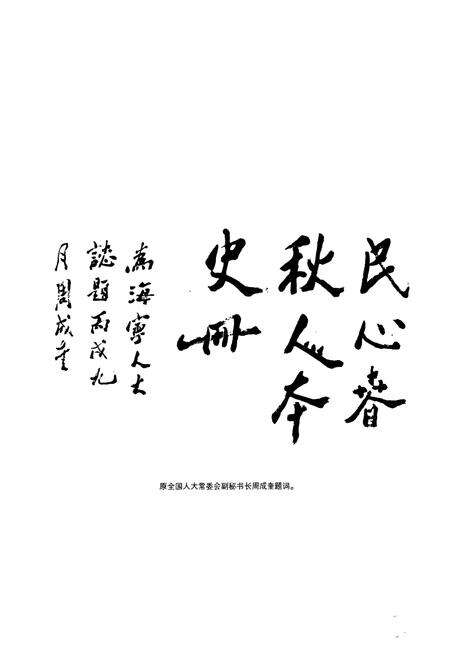 民心春
秋人本
史冊
為海寧人大
誌題丙戌九
月周成奎
原全国人大常委会副秘书长周成奎题词。